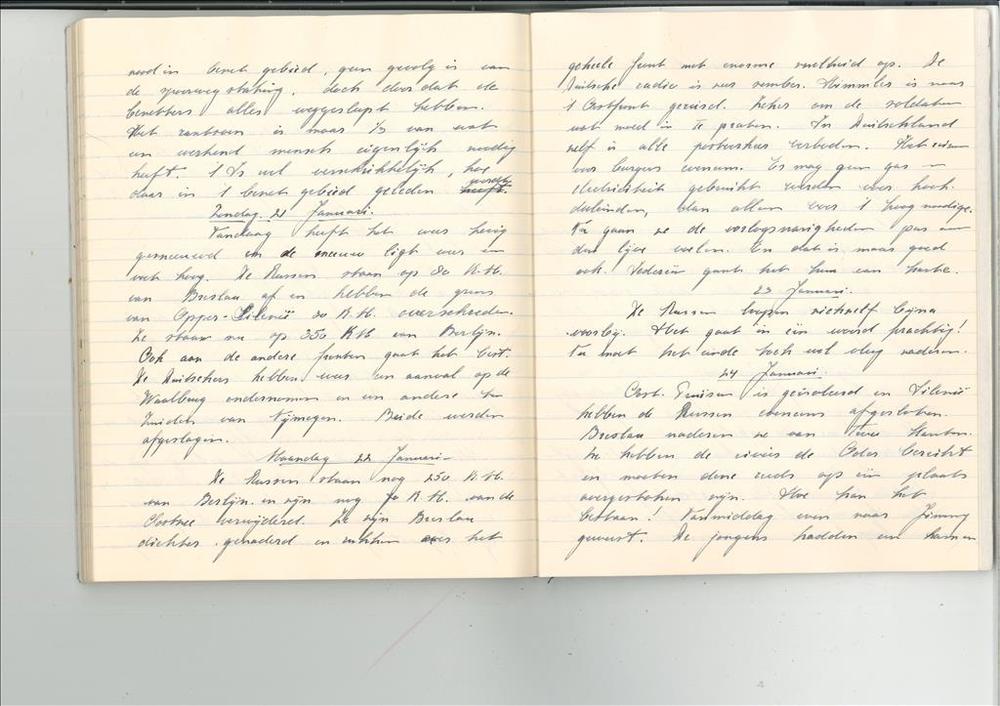 nood in bevrt gebied, geen gevolg is van
de spoorwegstaking, doch doordat de
bezetters alles weggesleept hebben.
Het rantsoen is maar 1/3 van wat
een werkend mensch eigenlijk noodig
heeft. 't Is wel verschrikkelijk, hoe
daar in 't bevrt gebied geleden wordt
Zondag 21 Januari.
Vandaag heeft het weer hevig
gesneeuwd en de sneeuw ligt weer een
voet hoog. De Russen staan op 30 K.M.
van Breslau af en hebben de grens
van Opper-Silezië 20 K.M. overschreden.
Ze staan nu op 350 KM van Berlijn.
Ook aan de andere fronten gaat het best.
De Duitschers hebben weer een aanval op de
Waalbrug ondernomen en een andere ten
Zuiden van Nijmegen. Beide werden
afgeslagen.
Maandag 22 Januari
De Russen staan nog 250 K.M.
van Berlijn en zijn nog 70 K.M. van de
Oostzee verwijderd. Ze zijn Breslau
dichter genaderd en rukken over het
geheele front met enorme snelheid op. De
Duitsche radio is zeer somber. Himmler is naar
't Oostfront gereisd. Zeker om de soldaten
wat moed in te praten. In Duitschland
zelf is alle postverkeer verboden. Het
voor burgers eveneens. Er mag geen gas en
electriciteit gebruikt worden voor
doeleinden, dan alleen voor 't hoog noodige.
Nu gaan ze de oorlogsnarigheden pas aan
den lijve voelen. En dat is maar goed
ook. Iedereen gaat het hun van harte.
23 Januari.
De Russen loopen zichzelf bijna
voorbij. Het gaat in één woord prachtig!
Nu moet het einde toch wel vlug naderen.
24 Januari.
Oost-Pruisen is geïsoleerd en Silezië
hebben de Russen eveneens afgesloten.
Breslau naderen ze van twee kanten.
Ze hebben de rivier de Oder bereikt
en moeten deze reeds op één plaats
overgestoken zijn. Hoe kan het
bestaan! Vanmiddag even naar Jimmy
geweest. De jongens hadden een